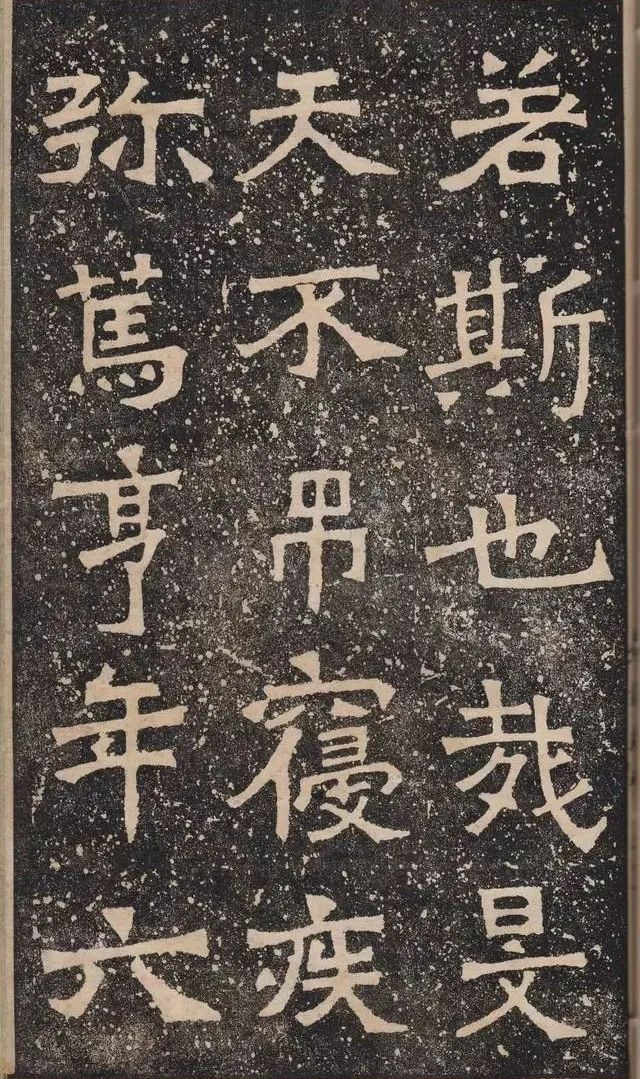 若斯也哉旻
天不吊寢疾
弥篤亨年六